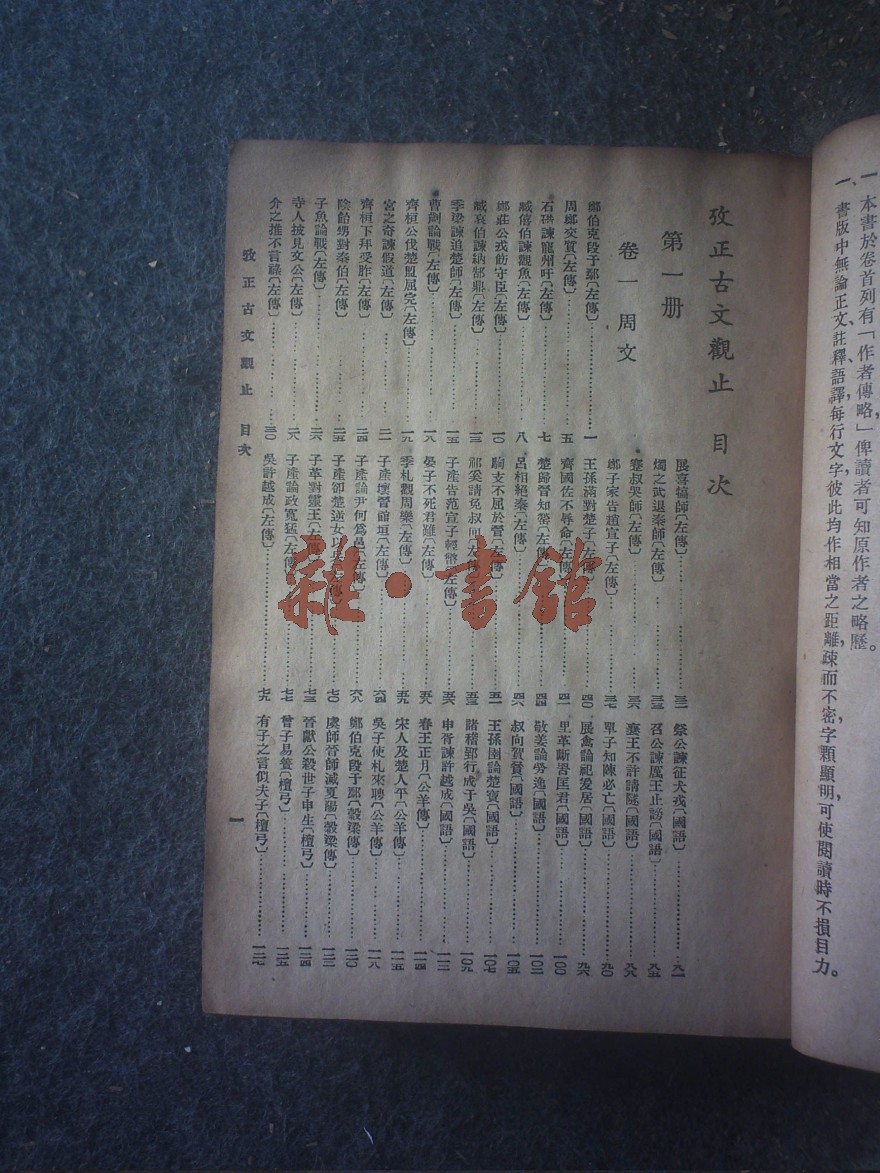 一、本書於卷首列有「作者傳略」俾讀者可知原作者之略歷。
一、書版中無論正文、註釋、語譯、每行文字，彼此均作相當之距離，疎而不密，字顆顯明，可使閱讀時不損目力。
攷正古文觀止 目次
第一册
卷一周文
鄭伯克段于鄢〔左傳〕……一
周鄭交質〔左傳〕……五
石碏諫寵州吁〔左傳〕……七
臧僖伯諫觀魚〔左傳〕……八
鄭莊公戒飭守臣〔左傳〕……一〇
臧哀伯諫納郜鼎〔左傳〕……一三
季梁諫追楚師〔左傳〕……一五
曹劌論戰〔左傳〕……一八
齊桓公伐楚盟屈完〔左傳〕……一九
宮之奇諫假道〔左傳〕……二一
齊桓下拜受胙〔左傳〕……二四
陰飴甥對秦伯〔左傳〕……二五
子魚論戰〔左傳〕……二六
寺人披見文公〔左傳〕……二八
介之推不言祿〔左傳〕……三〇
展喜犒師〔左傳〕……三一
燭之武退秦師〔左傳〕……三三
蹇叔哭師〔左傳〕……三六
鄭子家告趙宣子〔左傳〕……三七
王孫滿對楚子〔左傳〕……四〇
齊國佐不辱命〔左傳〕……四一
楚歸晉知罃〔左傳〕……四四
呂相絕秦〔左傳〕……四六
駒支不屈於晉〔左傳〕……五一
祁奚請免叔向〔左傳〕……五三
子產告范宣子輕幣〔左傳〕……五六
晏子不死君難〔左傳〕……五八
季札觀周樂〔左傳〕……五九
子產壞晉館垣〔左傳〕……六四
子產論尹何爲邑〔左傳〕……六八
子產卻楚逆女以兵〔左傳〕……七〇
子革對靈王〔左傳〕……七三
子產論政寬猛〔左傳〕……七七
吳許越成〔左傳〕……七九
祭公諫征犬戎〔國語〕……八一
召公諫厲王止謗〔國語〕……八五
襄王不許請隧〔國語〕……八八
單子知陳必亡〔國語〕……九〇
展禽論祀爰居〔國語〕……九六
里革斷罟匡君〔國語〕……一〇〇
敬姜論勞逸〔國語〕……一〇二
叔向賀貧〔國語〕……一〇五
王孫圉論楚寶〔國語〕……一〇七
諸稽郢行成于吳〔國語〕……一〇九
申胥諫許越成〔國語〕……一一二
春王正月〔公羊傳〕……一一四
宋人及楚人平〔公羊傳〕……一一五
吳子使札來聘〔公羊傳〕……一一八
鄭伯克段于鄢〔穀梁傳〕……一二〇
虞師晉師滅夏陽〔穀梁傳〕……一二二
晉獻公殺世子申生〔檀弓〕……一二四
曾子易簀〔檀弓〕……一二五
有子之言似夫子〔檀弓〕……一二七
攷正古文觀止 目次
一
雜·書館